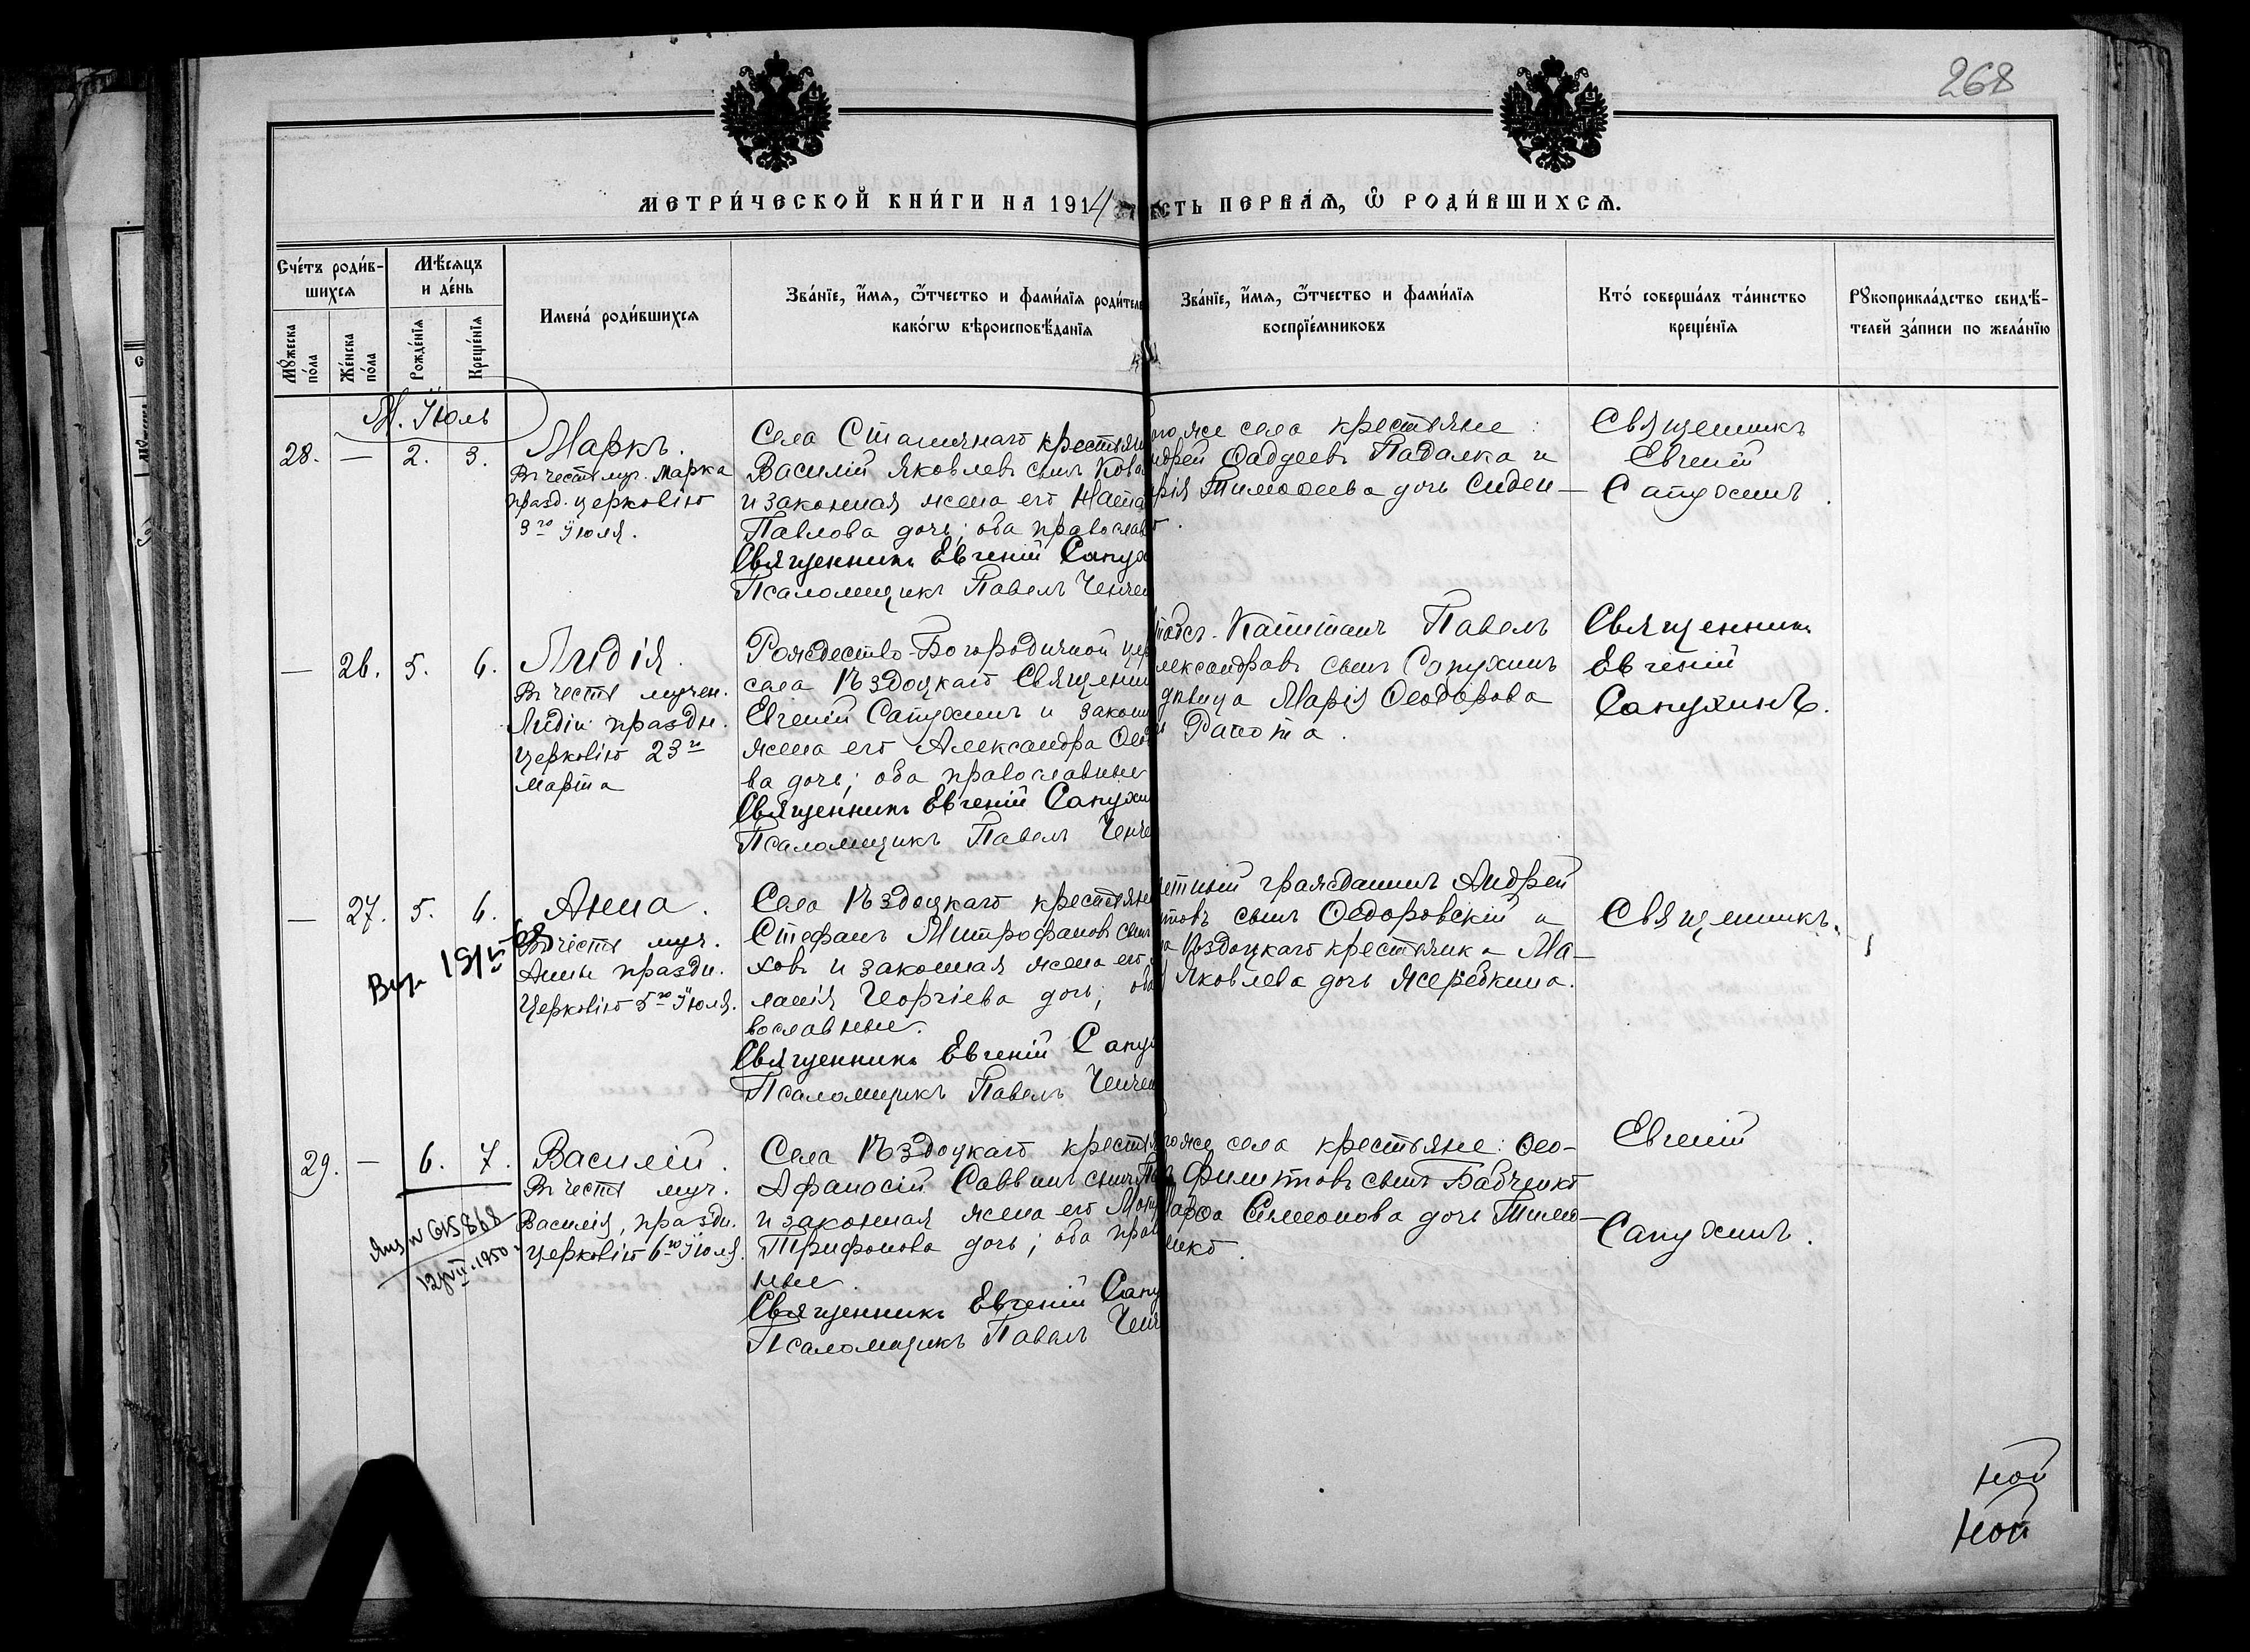 268
МЕТРИ́ЧЕСКОЙ КНИ́ГИ НА 1914 ЧАСТЬ ПЕРВАѦ, Ѿ РОДИ́ВШИХСѦ.
Сче́тъ роди́в-
шихсѧ
Мѣ́сѧцъ
и де́нь
Мꙋ́жеска по́ла
Же́нска по́ла
Рожде́нїѧ
Креще́нїѧ
Имена́ роди́вшихсѧ
Зва́нїе, и҆́мѧ, ѻ҆́тчество и фами́лїѧ роди́теле
како́гѡ вѣроисповѣ́данїѧ
Зва́нїе, и҆́мѧ, ѻ҆́тчество и фами́лїѧ
воспрїе́мниковъ
Кто́ соверша́лъ та́инство
креще́нїѧ
Рꙋкоприкла́дство свидѣ́-
телей за́писи по жела́нїю
М. Іюль
28. — 2. 3.
Маркъ.
Въ честь муч. Марка
празд. церковію
3го Іюля.
Села крестьян
Василій Яковлевъ сынъ Кова
и законная жена его Наста
Павлова дочь; оба православ
Священникъ Евгеній Сапух
Псаломщикъ Павелъ Ченче
того же села крестьяне:
Андрей Фаддеевъ Падалка и
рія Тимофеева дочь Сиден-
Священникъ
Евгеній
Сапухинъ.
— 26. 5. 6.
Лидія.
Въ честь мучен.
Лидіи праздн.
церковію 23го
Марта
Рождество-Богородичной цер
села Ѣздоцкаго Священни
Евгеній Сапухинъ и закон
жена его Александра Ѳеод
ва дочь; оба православные
Священникъ Евгеній Сапухи
Псаломщикъ Павелъ Ченче
Капитанъ Павелъ
лександровъ сынъ Сапухинъ
дѣвица Марія Ѳеодорова
Рапота.
Священникъ
Евгеній
Сапухинъ.
— 27. 5. 6.
Анна.
Въ честь муч.
Анны праздн.
Церковію 5го Іюля.
Села Ѣздоцкаго крестьяне
Стефанъ Митрофановъ сынъ
ховъ и законная жена его
ланія Георгіева дочь; оба
вославные.
Священникъ Евгеній Сапу
Псаломщикъ Павелъ Ченчен
етный гражданинъ Андрей
товъ сынъ Ѳедоровскій и
Ѣздоцкаго крестьянка Ма-
Яковлева дочь Жеребкина.
Священникъ
29. — 6. 7.
Василій.
Въ честь муч.
Василія, праздн.
церковію 6го Іюля.
12/VII.1950
Села Ѣздоцкаго крестья
Афанасій Саввинъ сынъ
и законная жена его
Трифонова дочь; оба прав
ные.
Священникъ Евгеній Сапу
Псаломщикъ Павелъ Ченч
го же села крестьяне: Ѳео-
Филиповъ сынъ Бабченко
Марфа Симеонова дочь Тимо-
енко.
Евгеній
Сапухинъ.
ной
ной